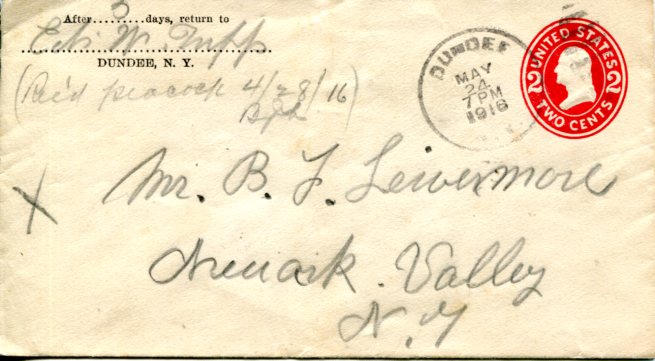 After 5 days, return to
W. Tupp
DUNDEE, N. Y.
(Rec'd peacock 4/28/16)
DUNDEE
MAY
24
7 PM
1916
UNITED STATES
2 2
TWO CENTS
X
Mr. B. F. Livermore
Newark Valley
N. Y